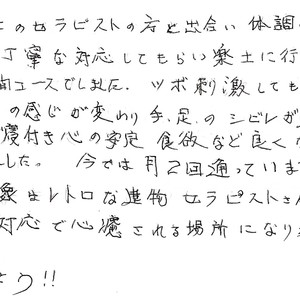 このセラピストの方と出会い 体調
丁寧な対応してもらい楽土に行
コースでしました。ツボ刺激しても
の感じが変わり手、足のシビレが
寝付き心の安定 食欲など良くな
した。 今では月2回通っていま
楽土レトロな建物 セラピストさん
対応で心癒される場所になり
!!